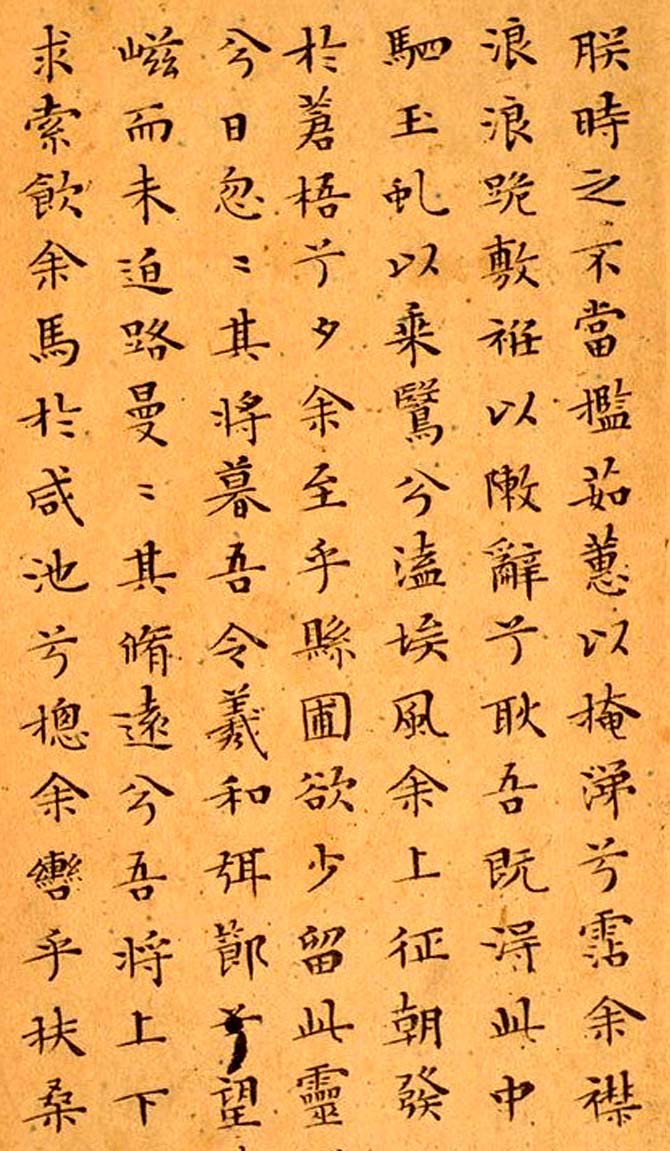 朕時之不當檻茹蕙以掩涕兮霑余襟
浪浪跪敷袵以敶辭兮耿吾既得此中
駟玉虬以乘鷖兮溘埃風余上征朝發
於蒼梧兮夕余至乎縣圃欲少留此靈
兮日忽〻其將暮吾令羲和弭節兮望
嵫而未迫路曼〻其脩遠兮吾將上下
求索飲余馬於咸池兮揔余轡乎扶桑